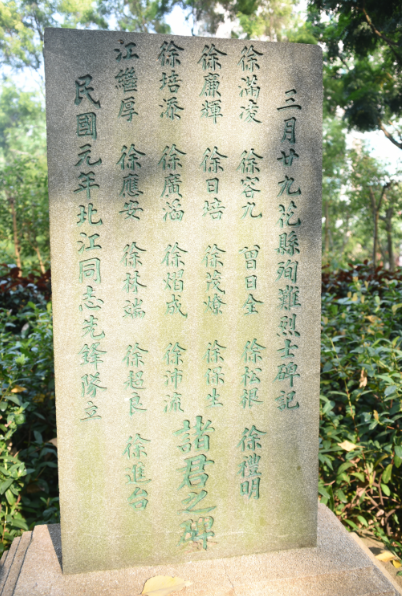 三月廿九花縣殉難烈士碑記
徐滿凌 徐容九 曾日全 徐松根 徐禮明
徐廉輝 徐日培 徐茂燎 徐保生
徐培添 徐廣滔 徐熠成 徐沛流
諸君之碑
江繼厚 徐應安 徐林端 徐超良 徐進台
民國元年北江同志先鋒隊立